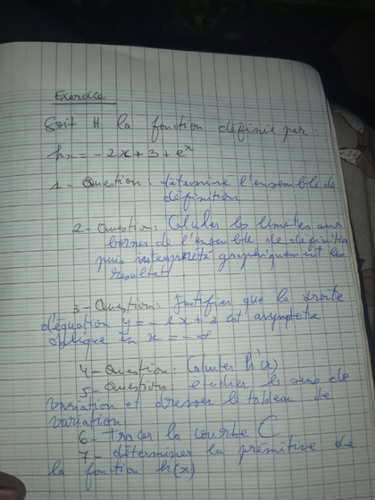 Exercice
Soit H la fonction définie par :
hx = -2x + 3 + e^x
1 - Question : détermine l'ensemble de
définition
2 - Question : Calculer les limites aux
bornes de l'ensemble de définition
puis interprété graphiquement les
résultats
3 - Question : Justifier que la droite
d'équation y = - 2x + 3 est asymptote
oblique en x = -∞
4 - Question : Calculer h'(x)
5 - Question : étudier le sens de
variation et dresser le tableau de
variation
6 - Tracer la courbe C
7 - déterminer la primitive de
la fonction h(x)